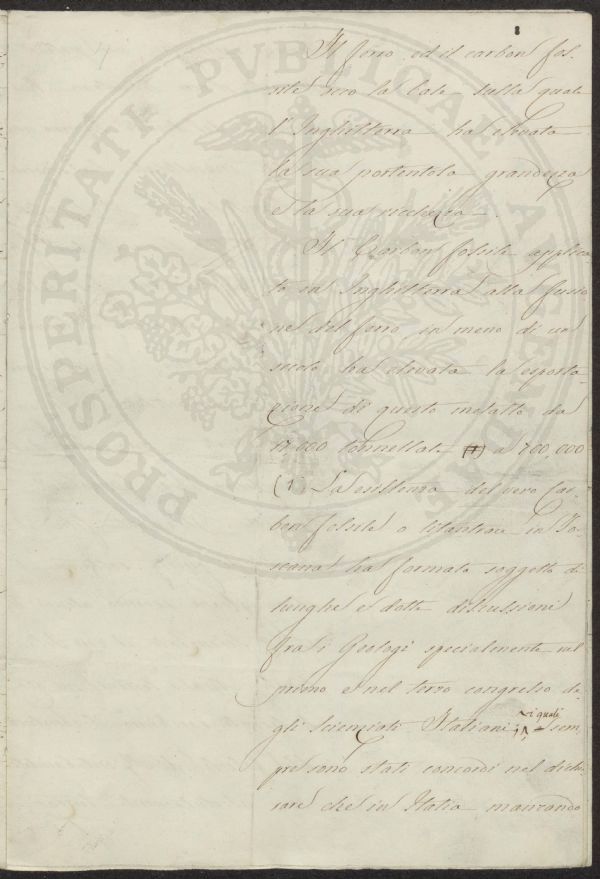 8
4
Il ferro ed il carbon fos-
sile sono la base sulla quale
l'Inghilterra ha elevata
la sua portentosa grandezza
e la sua ricchezza.
Il Carbon fossile applica
to in Inghilterra alla fusio
ne del ferro in meno di un
secolo ha elevata la esporta-
zione di questo metallo da
17.000 tonnellate a 700,000
(1) La esistenza del vero Car-
bon fossile o litantrace in To-
scana ha formato soggetto di
lunghe e dotte discussioni
fra i Geologi specialmente nel
primo e nel terzo congresso de-
gli Scienziati Italiani, i quali sem
pre sono stati concordi nel dichia
rare che in Italia mancando
PROSPERITATI PVBLICAE AVGENDAE